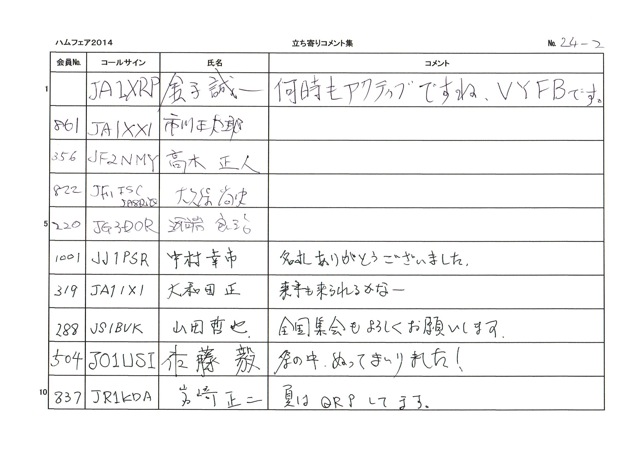 ハムフェア2014 立ち寄りコメント集 No. 24-2
会員No. コールサイン 氏名 コメント
1 JA1XRP 金子誠一 何時もアクティブですね、VYFBです。
861 JA1XXI 市川
356 JF2NMY 高木正人
822 大久保尚史
5 220 JG3DOR
1001 JJ1PSR 中村幸市 名札ありがとうございました。
319 JA1IXI 大和田正 来年も来られるかなー
288 JS1BVK 山田哲也 全国集会もよろしくお願いします。
504 JO1USI 佐藤毅 の中、ぬってまいりました!
10 837 JR1KDA 岩崎正二 夏はQRPしてます。